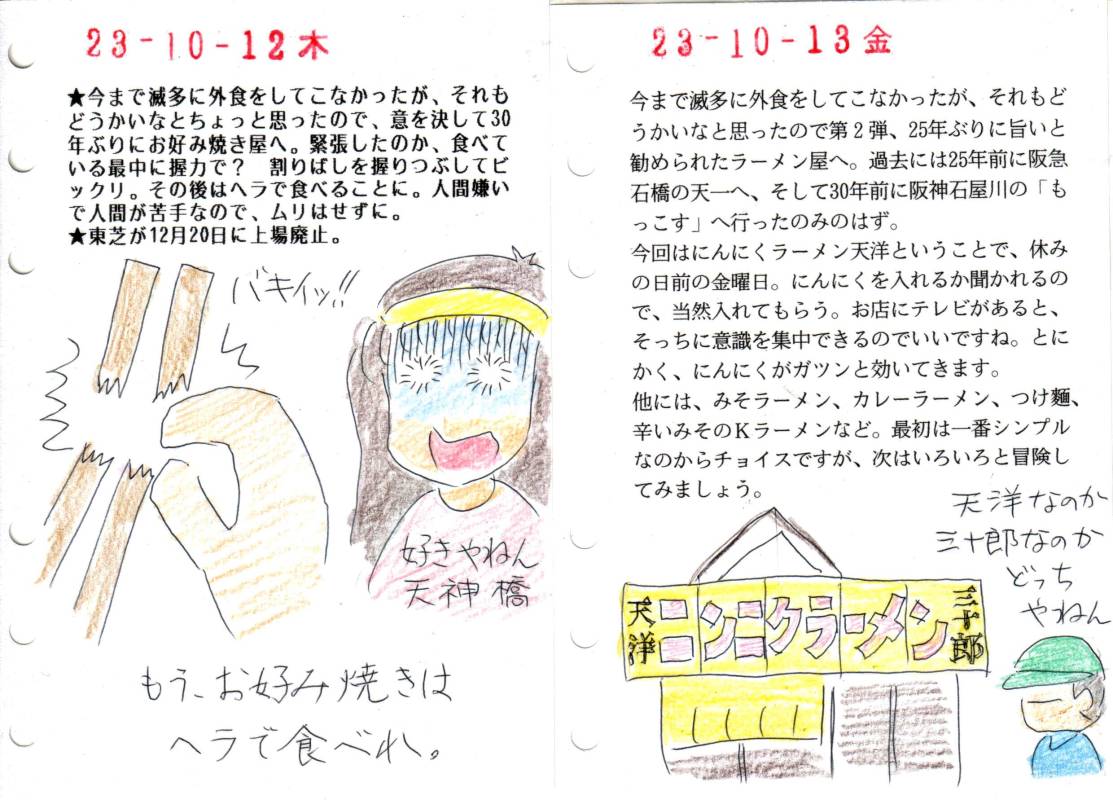 23-10-12木
★今まで滅多に外食をしてこなかったが、それも
どうかいなとちょっと思ったので、意を決して30
年ぶりにお好み焼き屋へ。緊張したのか、食べて
いる最中に握力で？　割りばしを握りつぶしてビ
ックリ。その後はヘラで食べることに。人間嫌い
で人間が苦手なので、ムリはせずに。
★東芝が12月20日に上場廃止。
バキイッ!!
好きやねん
天神橋
もう、お好み焼きは
ヘラで食べれ。
23-10-13金
今まで滅多に外食をしてこなかったが、それもど
うかいなと思ったので第２弾、25年ぶりに旨いと
勧められたラーメン屋へ。過去には25年前に阪急
石橋の天一へ、そして30年前に阪神石屋川の「も
っこす」へ行ったのみのはず。
今回はにんにくラーメン天洋ということで、休み
の日前の金曜日。にんにくを入れるか聞かれるの
で、当然入れてもらう。お店にテレビがあると、
そっちに意識を集中できるのでいいですね。とに
かく、にんにくがガツンと効いてきます。
他には、みそラーメン、カレーラーメン、つけ麺、
辛いみそのＫラーメンなど。最初は一番シンプル
なのからチョイスですが、次はいろいろと冒険し
てみましょう。
天洋なのか
三十郎なのか
どっち
やねん
天洋
ニンニクラーメン
三十郎